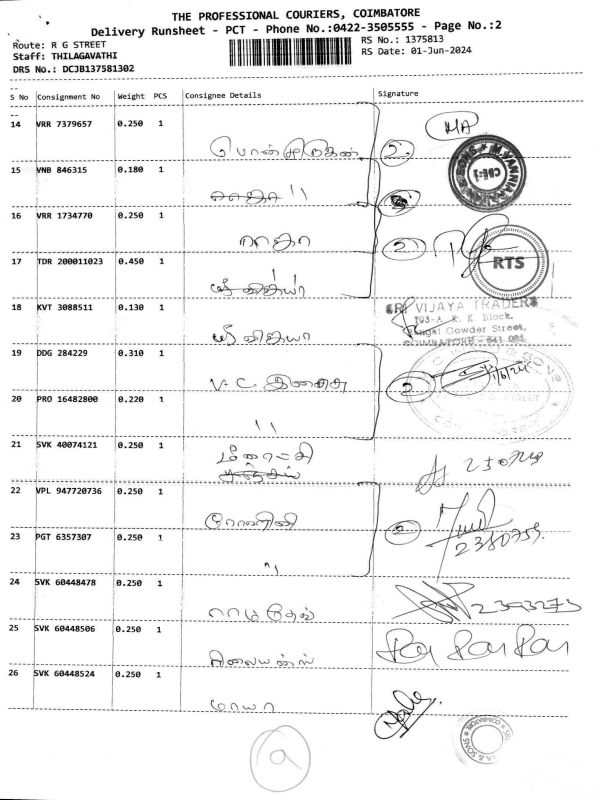 THE PROFESSIONAL COURIERS, COIMBATORE
Delivery Runsheet - PCT - Phone No.:0422-3505555 - Page No.:2
Route: R G STREET
RS No.: 1375813
Staff: THILAGAVATHI
RS Date: 01-Jun-2024
DRS No.: DCJB137581302
S No Consignment No Weight PCS Consignee Details Signature
14 VRR 7379657 0.250 1
2
15 VNB 846315 0.180 1
16 VRR 1734770 0.250 1
ராஜா
2
RTS
17 TDR 200011023 0.450 1
ஸ்ரீ விஜயா
18 KVT 3088511 0.130 1
SRI VIJAYA TRADERS
703-A, R. K. Block,
Rangai Gowder Street,
COIMBATORE - 641 001
ஸ்ரீ விஜயா
19 DDG 284229 0.310 1
V.C.
2
1/6/24
20 PRO 16482800 0.220 1
"
21 SVK 40074121 0.250 1
மீனாட்சி
22 VPL 947720736 0.250 1
2
2380759
23 PGT 6357307 0.250 1
"
24 SVK 60448478 0.250 1
ராமதேவ்
2393273
25 SVK 60448506 0.250 1
ரிலையன்ஸ்
26 SVK 60448524 0.250 1
மாயா
a